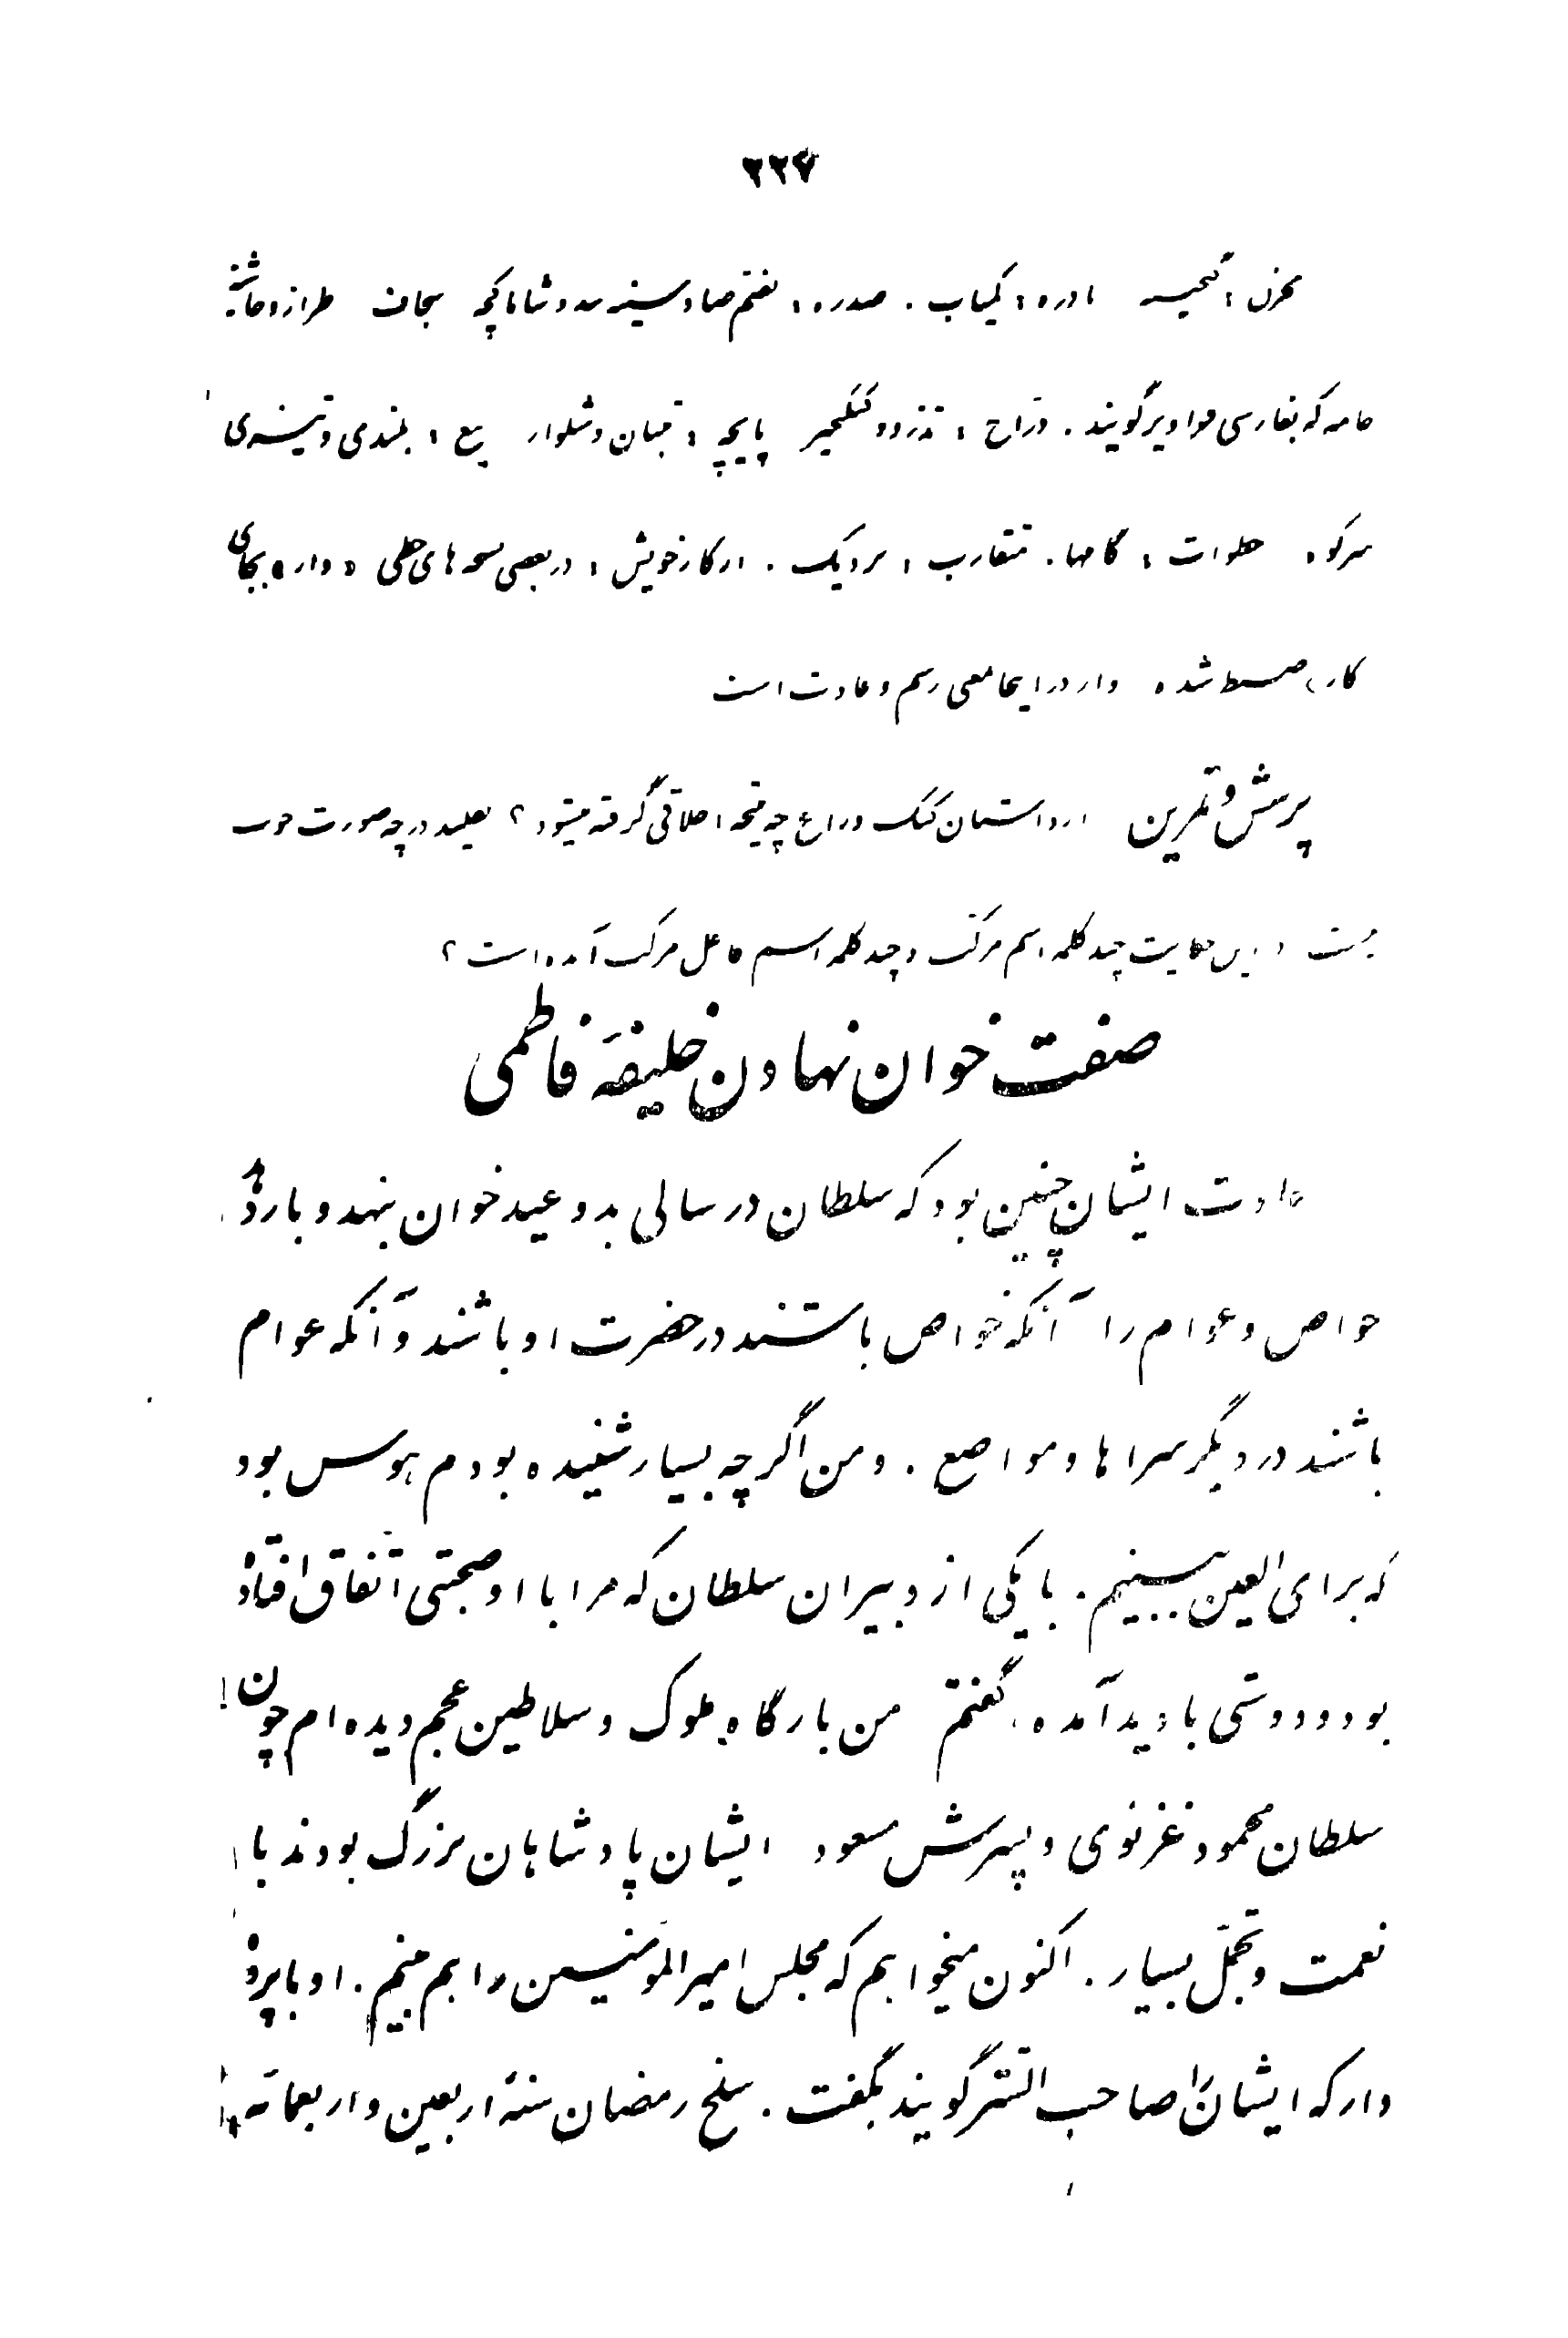 ۲۲۷
مخزن : گنجینه نادره : کمیاب . صدره : بضم صاد سینه بند و شاماکچه سجاف طراز و حاشیهٔ
جامه که بفارسی فراویز گویند . درّاج : تذرو پایچه : تنبان و شلوار بلندی و
خلوات : گامها . متقارب : نزدیک . از کار خویش : در بعضی نسخه های خطی «دار» بجای
کار ضبط شده دار در اینجا بمعنی رسم و عادت است
پرسش و تمرین از داستان کبک و زاغ چه نتیجهٔ اخلاقی گرفته میشود ؟ تقلید در چه صورت خوب
است در این حکایت چند کلمه اسم مرکب و چند کلمه اسم فاعل مرکب آمده است ؟
صفت خوان نهادن خلیفهٔ فاطمی
عادت ایشان چنین بود که سلطان در سالی بدو عید خوان بنهد و بار دهد
خواص و عوام را آنکه خواص باشند در حضرت او باشند و آنکه عوام
باشند در دیگر سراها و مواضع . و من اگرچه بسیار شنیده بودم هوس بود
که برای العین ببینم . با یکی از دبیران سلطان که مرا با او صحبتی اتّفاق افتاده
بود و دوستی با دید آمده ، گفتم من بارگاه ملوک و سلاطین عجم دیده ام چون
سلطان محمود غزنوی و پسرش مسعود ایشان پادشاهان بزرگ بودند با
نعمت و تجمّل بسیار . اکنون میخواهم که مجلس امیرالمؤمنین را هم ببینم . او با پرده
دار که ایشان را صاحب الستر گویند بگفت . سلخ رمضان سنهٔ اربعین و اربعمائه